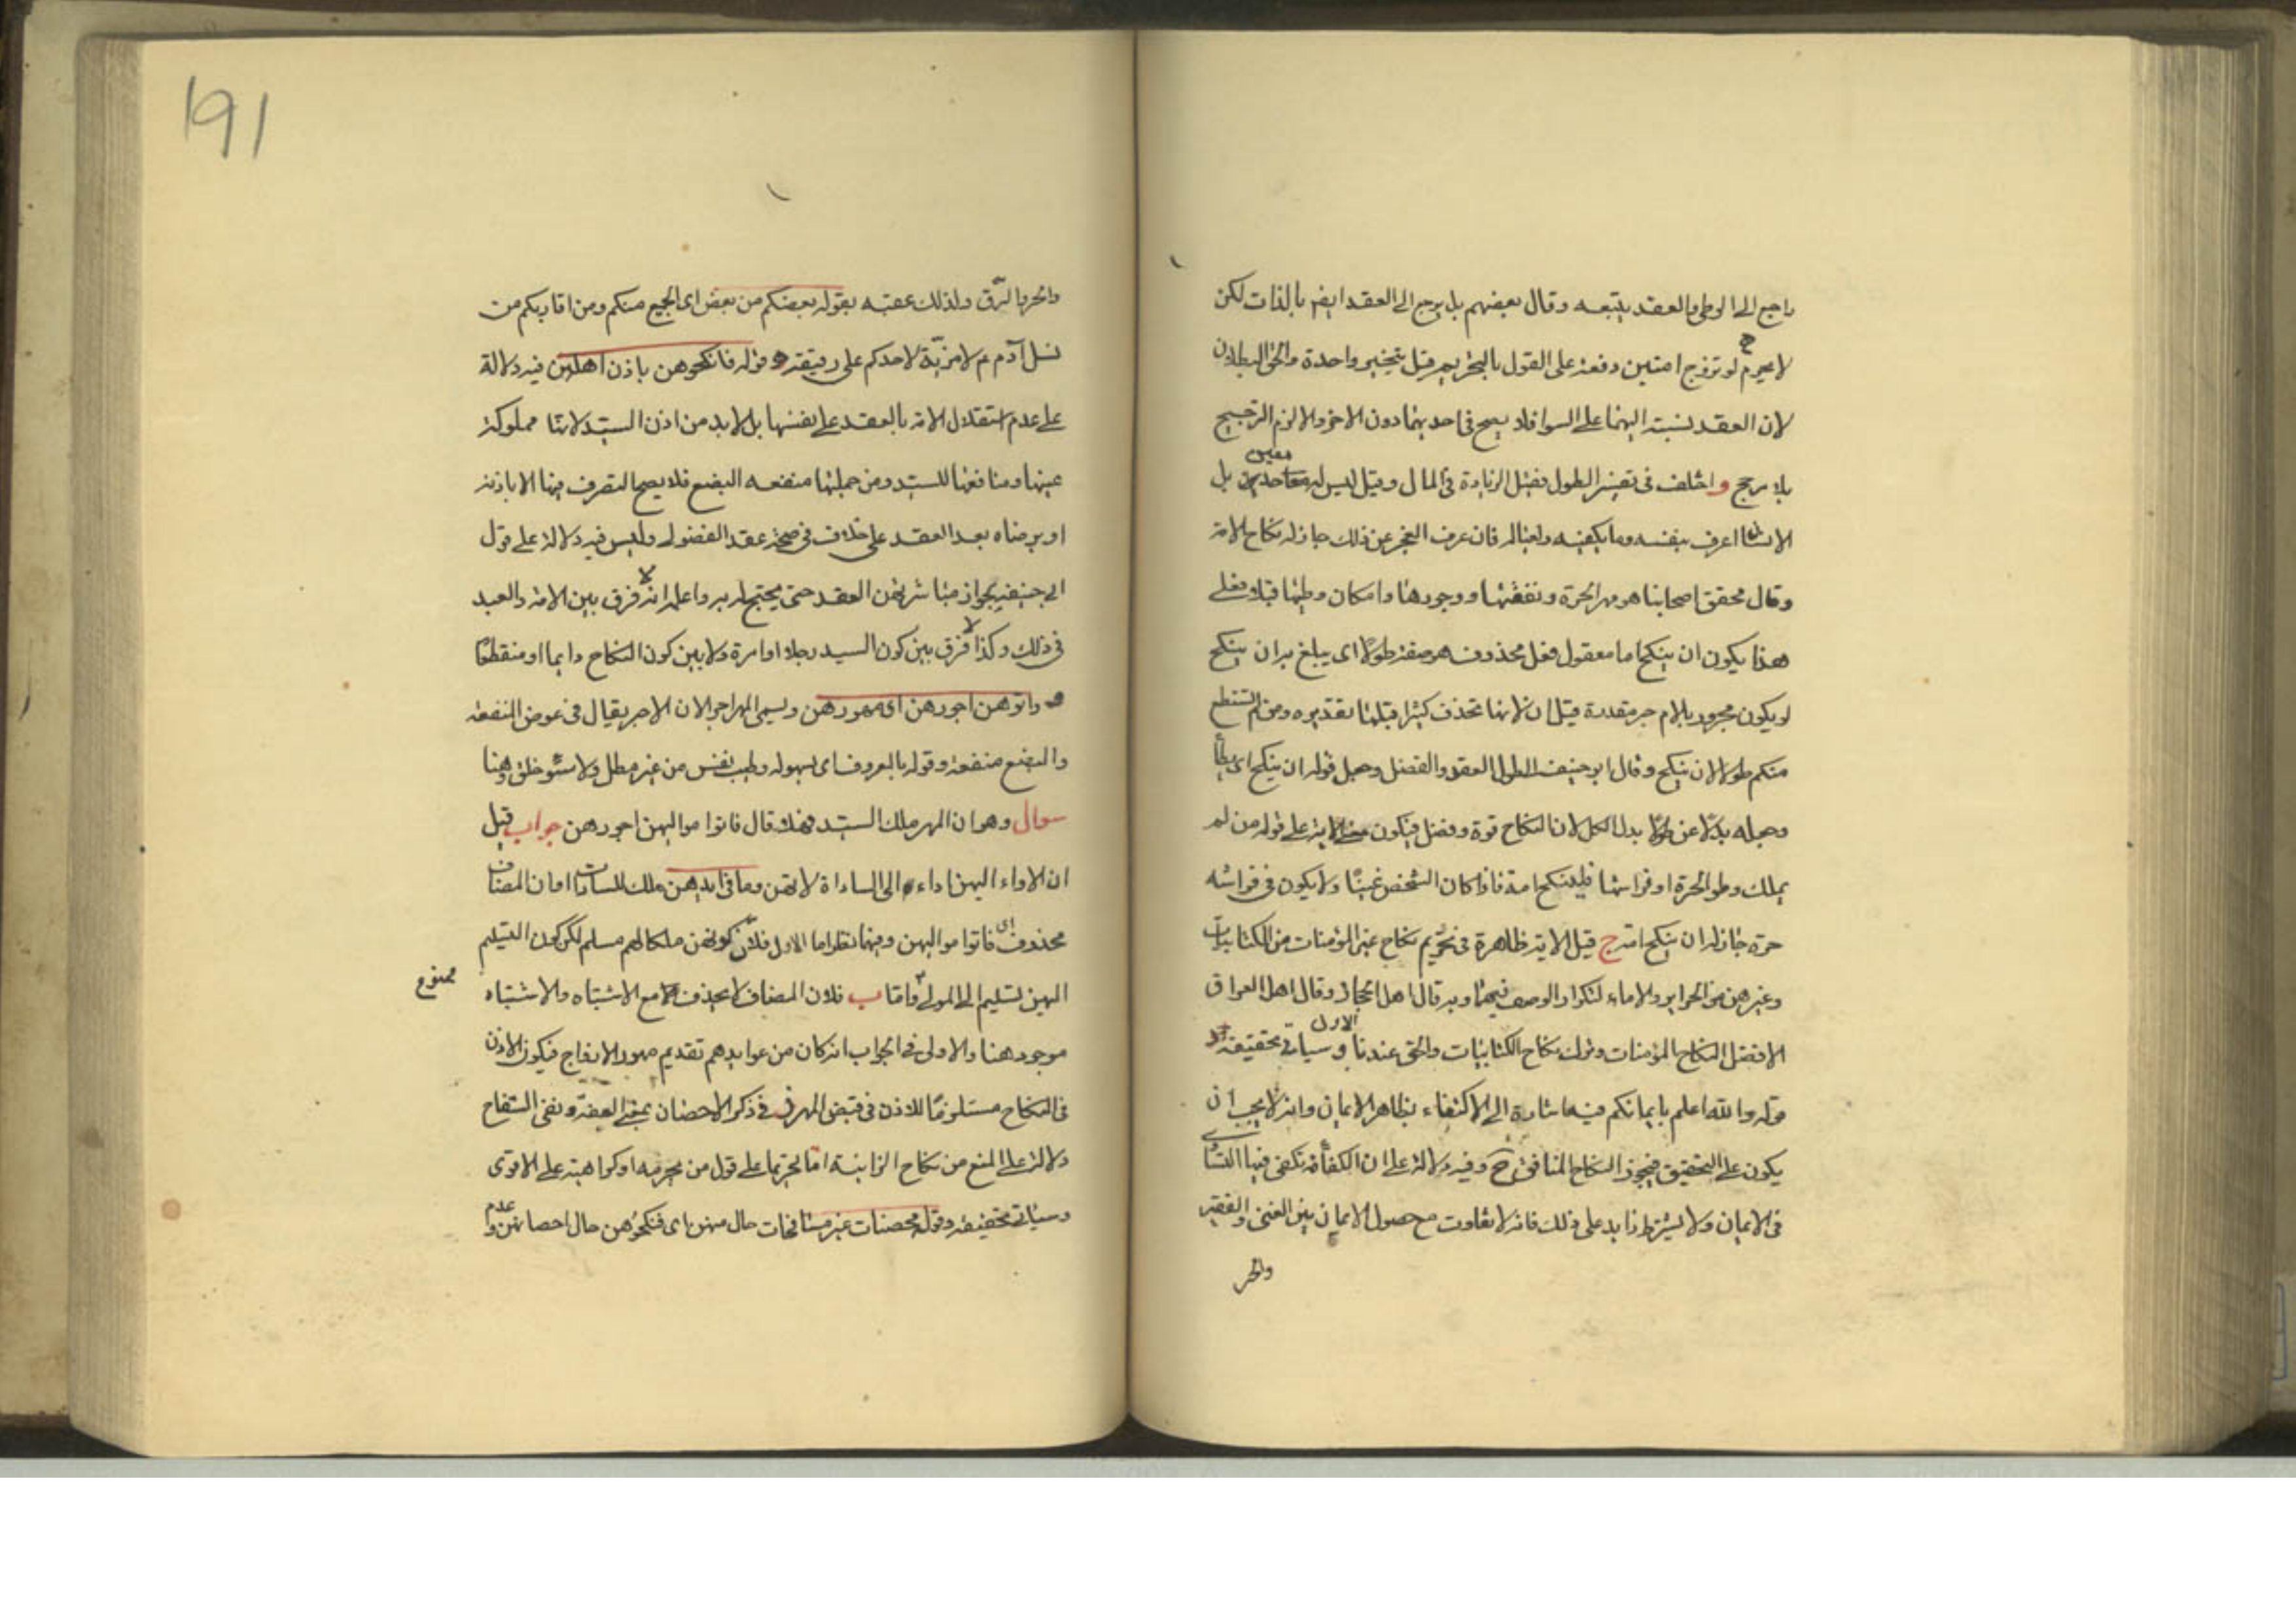 راجع الى الوطى والعقد يتبعه وقال بعضهم بل يرجع الى العقد ايضر بالذات لكن
لا لو تزوج امتين دفعة على القول بالتحريم قيل يتخير واحدة والحق البطلان
لان العقد نسبته اليهما على السوا فلا يصح فى احديهما دون الاخر والا لزم الترجيح
بلا مرجح واختلف فى تفسير الطول فقيل الزيادة فى المال وقيل ليس له بل
معين
الانسان اعرف بنفسه وما يكفيه ولعياله فان عرف العجز عن ذلك جاز له نكاح الامة
وقال محقق اصحابنا هو مهر الحرة ونفقتها ووجودها وامكان وطئها قبلا فعلى
هذا يكون ان ينكحها معقول فعل محذوف هو صفة طولا اى يبلغ به ان ينكح
او يكون مجرور بلام جر مقدرة قيل ان لانها تحذف كثيرا قبلها تقديره ومن لم يستطع
منكم طولا لان ينكح وقال ابو حنيفة الطول العقد والفضل وجعل قوله ان ينكح اى يطأ
وجعله بدلا عن طولا بدل الكل لان النكاح قوة وفضل فيكون معنى الاية على قوله من لم
يملك وطو الحرة او فراشها فلينكح امة فاذا كان الشخص غنيا ولا يكون فى فراشه
حرة جاز له ان ينكح امة ج قيل الاية ظاهرة فى تحريم نكاح غير المؤمنات من الكتابيات
وغيرهن من الحراير والاماء لتكرار الوصف فيهما وبه قال اهل الحجاز وقال اهل العراق
الافضل النكاح المؤمنات وترك نكاح الكتابيات والحق عندنا الاول وسياتى تحقيقه
قوله والله اعلم بايمانكم فيه اشارة الى الاكتفاء بظاهر الايمان وانه لا يجب ان
يكون على التحقيق فيجوز النكاح المنافق ح وفيه دلالة على ان الكفأة تكفى فيها التساوى
فى الايمان ولا يشترط زايد على ذلك فانه لا تفاوت مع حصول الايمان بين الغنى والفقير
والحر
191
والحر والرق ولذلك عقبه بقوله بعضكم من بعض اى الجميع منكم ومن اقاربكم من
نسل آدم م لا مزية لاحدكم على رقيقه و قوله فانكحوهن باذن اهلهن فيه دلالة
على عدم استقلال الامة بالعقد على نفسها بل لا بد من اذن السيد لانها مملوكة
عينها ومنافعها للسيد ومن جملتها منفعه البضع فلا يصح التصرف فيها الا باذنه
او برضاه بعد العقد على خلاف فى صحة عقد الفضولى وليس فيه دلالة على قول
ابى حنيفة بجواز مباشرتهن العقد حتى يحتج له به واعلم انه لا فرق بين الامة والعبد
فى ذلك وكذا لا فرق بين كون السيد رجلا او امرة ولا بين كون النكاح دايما او منقطعا
و واتوهن اجورهن اى مهورهن ويسمى المهر اجرا لان الاجر يقال فى عوض المنفعة
والبضع منفعة وقوله بالمعروف اى بسهولة وطيب نفس من غير مطل ولا سوء خلق وهنا
سوال وهو ان المهر ملك السيد فهلا قال فاتوا مواليهن اجورهن جواب قيل
ان الاداء اليهن اداء الى الساداة لانهن وما فى ايديهن ملك للسادات او ان المضاف
محذوف اى فاتوا مواليهن وفيهما نظر اما الاول فلان كونهن ملكا لهم مسلم لكن كون التسليم
اليهن تسليم الى المولى وامّا ب فلان المضاف لا يحذف مع الاشتباه والاشتباه
ممنوع
موجود هنا والاولى فى الجواب انه كان من عوايدهم تقديم مهور الازواج فيكون الاذن
فى النكاح مستلزما للاذن فى قبض المهر فى ذكر الاحصان بمعنى العفة ونفى السفاح
دلالة على المنع من نكاح الزانية امّا تحريما على قول من يحرمه او كراهية على الاقوى
وسياتى تحقيقه وقوله محصنات غير مسافحات حال منهن اى فنكحوهن حال احصانهن و عدم